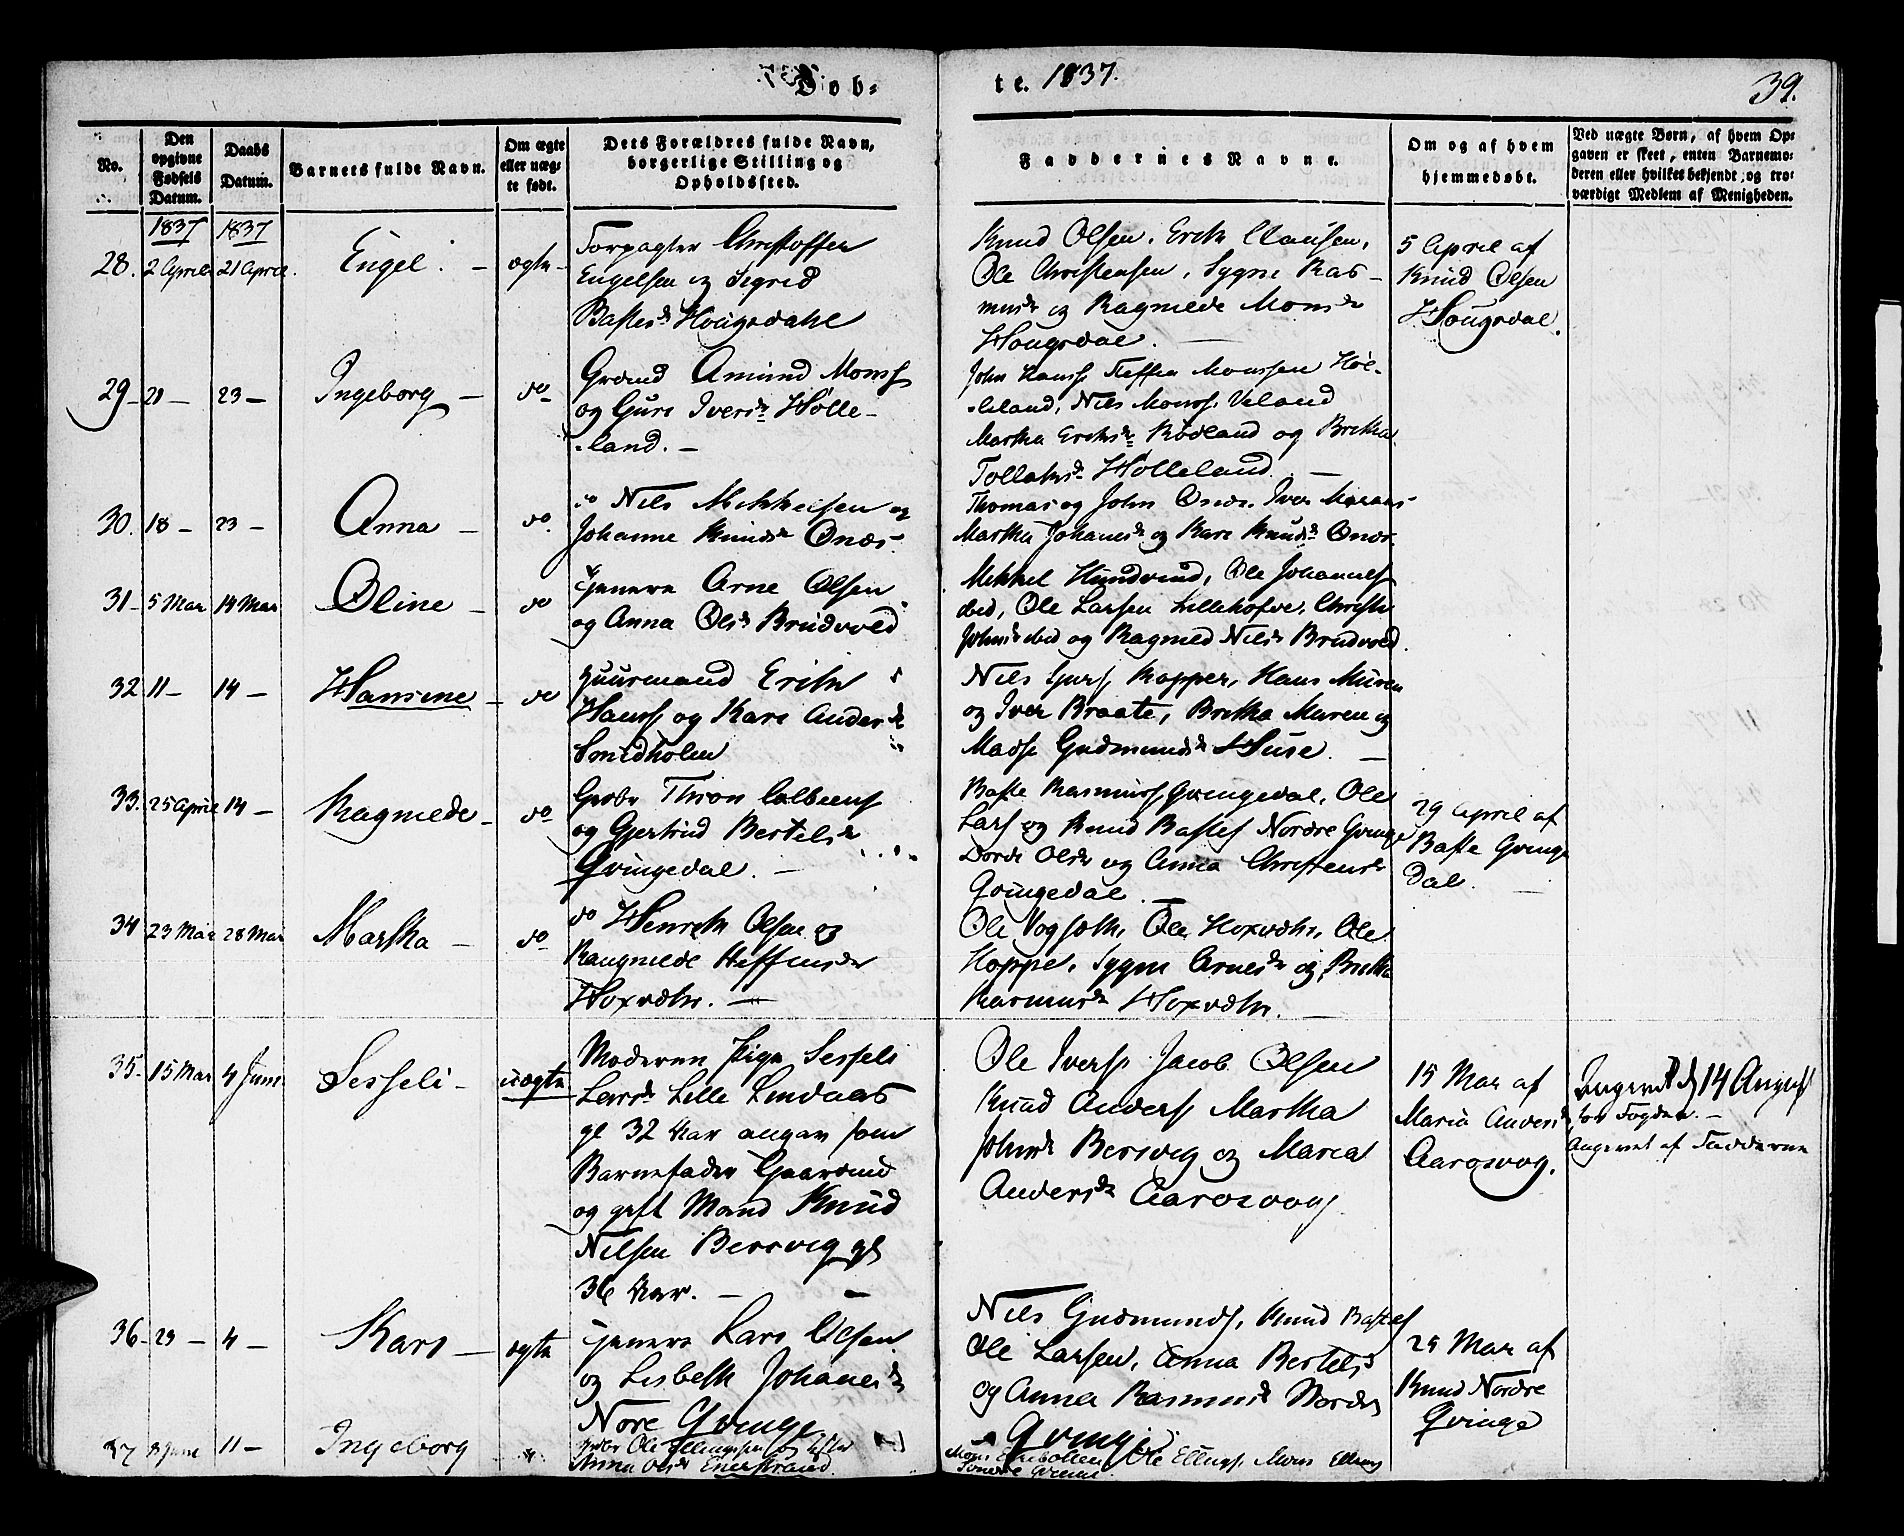 Døb-
te. 1837.
39.
No.
Den opgivne Fødsels Datum.
Daabs Datum.
Barnets fulde Navn.
Om ægte eller uægte født.
Dets Forældres fulde Navn, borgerlige Stilling og Opholdssted.
Faddernes Navne.
Om og af hvem hjemmedøbt.
Ved uægte Børn, af hvem Opgaven er skeet, enten Barnemoderen eller hvilkes bekjendt, og troværdigt Medlem af Menigheden.
1837 1837
28. 2 April 21 April. Engel. - ægte-
Forpagter Christoffer
Engelsen og Sigrid
Bastesd Hougsdahl
Knud Olsen. Erik Clausen,
Ole Christensen, Sygni Ras-
musd og Ragnilde Monsd
Hougsdal.
5 April af
Knud Olsen
Hougsdal.
29 - 21 - 23 - Ingeborg - do-
Grmd Amund Monss
og Guri Iversd Hølle-
land. -
John Hanss Steffen Monssen Høl-
leland, Nils Monss. Veland
Martha Eriksd Rødland og Britha
Tollaksd Hølleland. -
30. 18 - 23 - Anna - do.
do Nils Mikkelsen og
Johanne Knudsd Onæs.
Thomas og John Onæs. Iver
Martha Johanesd og Kari Knudsd Onæs.
31 - 5 Mai 14 Mai Oline - do
Arne Olsen
og Anna Olsd Brudvold
Mikkel Hundvind, Ole Johanness
ibid, Ole Larsen Lillehofve, Christi
Johnsd ibid og Ragnild Nilsd Brudvold.
32 11 - 14 - Hansine - do
Huusmand Erik
Hanss og Kari Andersd
Smidholm
Nils Hopper, Hans Muren
og Iver Braate, Britha Muren og
Madse Gudmundsd Huse. -
33. 25 April 14 - Ragnilde - do
Gjertrud Bertelsd
Qvingedal. -
Baste Rasmuss Qvingedal. Ole
Larss og Knud Bastes Nordre Qvinge
Dorde Olsd og Anna Christensd
Qvingedal.
29 April af
Baste Qvinge
dal. -
34 23 Mai 28 Mai Martha - do
do Henrik Olsen og
Raugnilde Steffensdr
Hoxvdhr. -
Ole Ole Hoxvdhr, Ole
Hoppe, Sygni Arnesd og Britha
Rasmusd Hoxvdhr. -
35. 15 Mai 4 Juni Sesseli - uægte
Moderen Pige Sesseli
Larsd Lille Lindaas
gl 32 Aar angav som
Barnefader Gaardmd
og gift Mand Knud
Nilsen Bersvig gl
36 Aar. -
Ole Iverss Jacob Olsen
Knud Anderss Martha
Johnsd Bersvig og Maria
Andersd Aarosvog.
15 Mai af
Maria Andersd
Aarosvog.
Angivet d 14 August
for Fogden. -
Angivet af Fadderne
36 - 23 - 4 - Kari - ægte
Lars Olsen
og Lisbeth Johanesd
Nore Qvinge
Nils Gudmunds, Knud Bastes
Ole Larsen, Anna Bertelsd
og Anna Rasmusd Nordre
Qvinge
25 Mai af
Knud Nordre
Qvinge
37 8 Juni 11 - Ingeborg
Ole Ellingsen og
Anna Olsd Enerstrand.
Ole Ellings. Mons Ellings